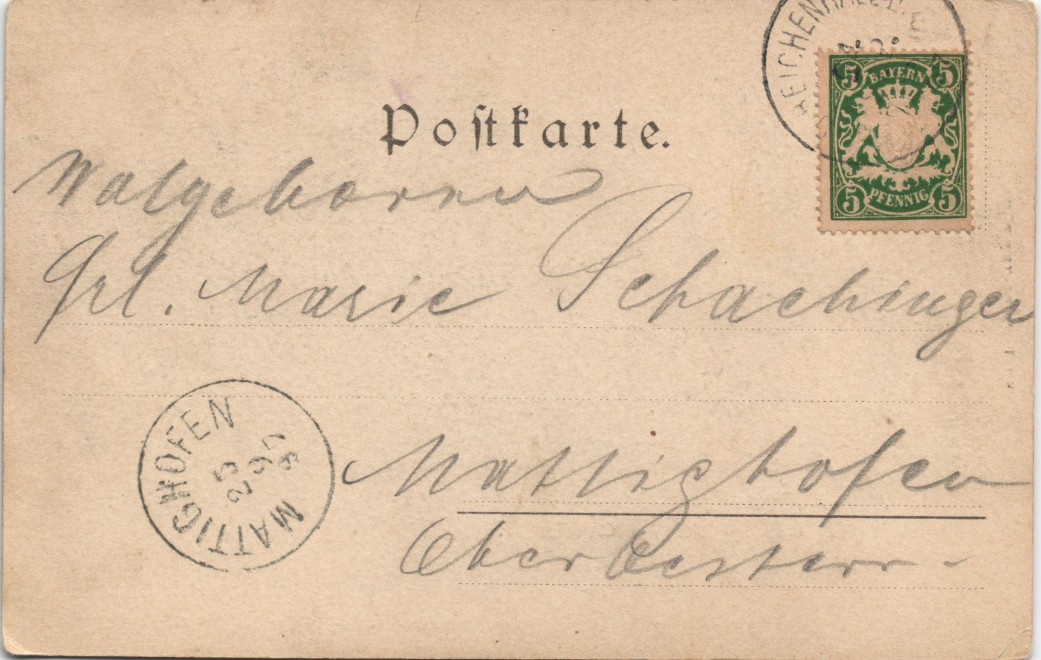 REICHENHALL
5 BAYERN 5
5 PFENNIG 5
Postkarte.
Walgeboren
Frl. Marie Schachinger
MATTIGHOFEN MATTIGHOFEN
Mattighofen
OberOesterr.